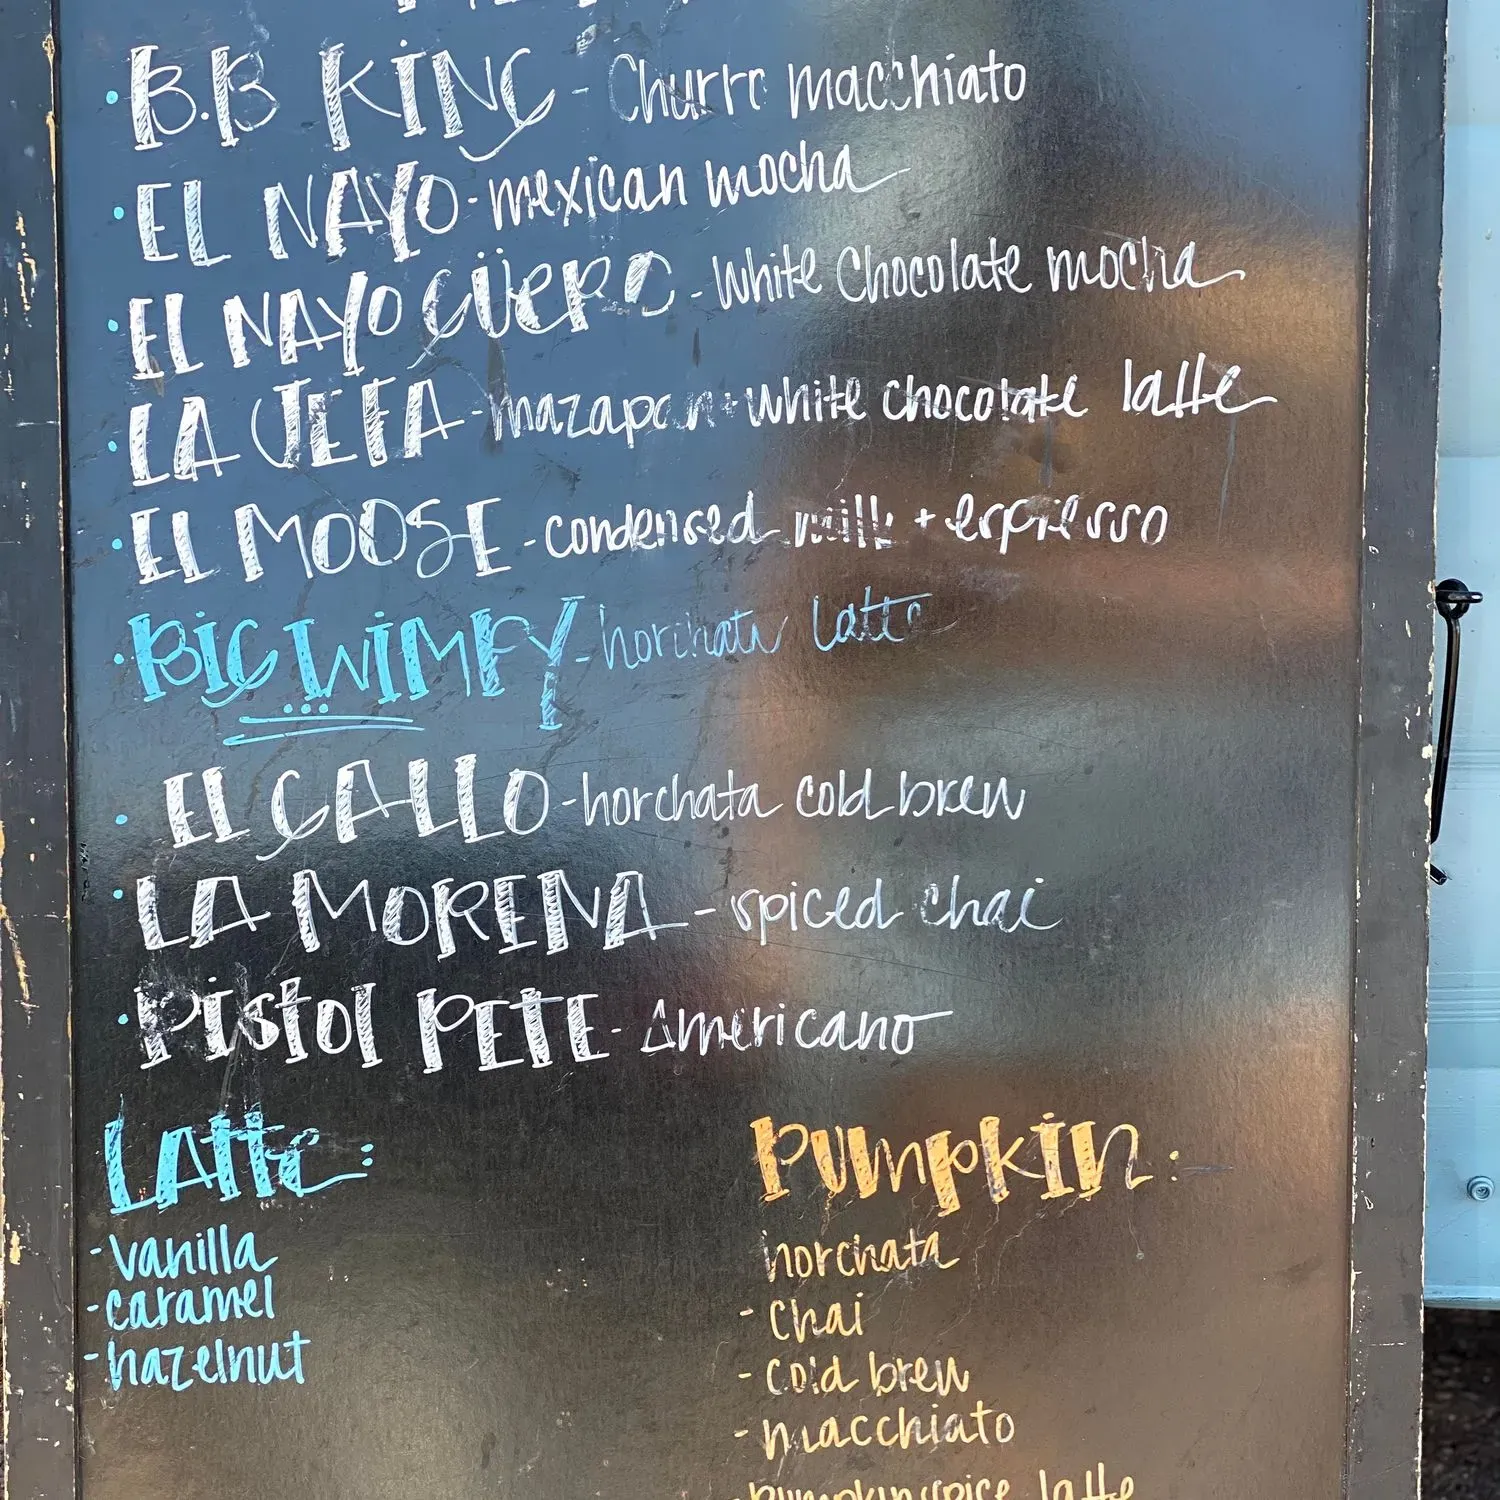 B.B KING - Churro macchiato
EL NAYO - mexican mocha
EL NAYO GÜERO - White Chocolate mocha
LA JEFA - mazapan + white chocolate latte
EL MOOSE - condensed milk + espresso
BIG WIMPY - horchata latte
EL GALLO - horchata cold brew
LA MORENA - spiced chai
PISTOL PETE - Americano
LATTE:
- vanilla
- caramel
- hazelnut
PUMPKIN:
horchata
- chai
- cold brew
- macchiato
- pumpkin spice latte